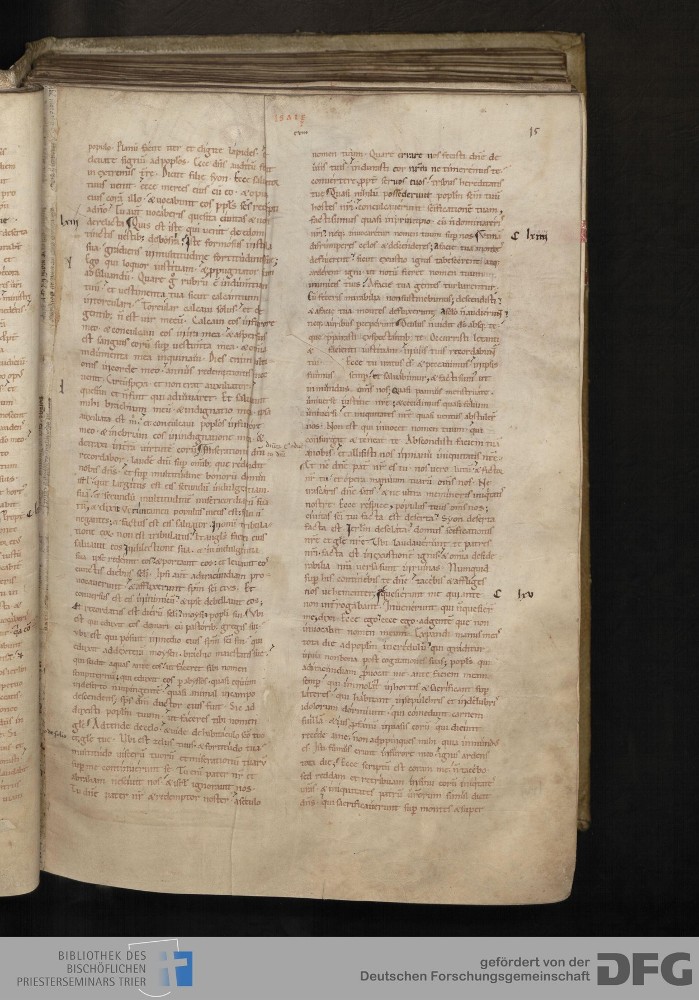 ISAIE
15
populo. Planū facite iter et eligite lapides. &
eleuate signū ad poplos. Ecce dn̄s auditū fecit
in extremis t̄re. Dicite filie syon. Ecce saluator
tuus uenit. ecce merces eius cū eo. & opus
eius corā illo. & uocabunt eos ppl̄s sc̄s redēpti
a dn̄o. Tu aut̄ uocaberis quesita ciuitas & non
lxiii
derelicta. Quis est iste qui uenit de edom
tinctis uestib; de bosra. Iste formosus in stola
sua. gradiens in multitudine fortitudinis sue;
Ego qui loquor iustitiam. & ppugnator sum
ad saluandū. Quare g̊ rubrū ē indumentum
tuū. et uestimenta tua sicut calcantium
in torculari. Torcular calcaui solus. et de
gentib; n̄ est uir mecū. Calcaui eos in furore
meo. & conculcaui eos in ira mea. & aspersus
est sanguis eorū sup uestimta mea. & omnia
indumenta mea inquinaui. Dies enim ulti
onis in corde meo. annus redemptionis mee
uenit. Circūspexi et non erat auxiliator.
quesiui et n̄ fuit qui adiuuaret. Et saluauit
mihi brachium meū. & indignatio mea ipsa
auxiliata est m̄. et conculcaui poplos in furore
meo. & inebriaui eos in indignatione mea. &
detraxi in t̄ra uirtutē eorū. Miserationū dn̄i
recordabor. laudē dn̄i sup omīb; que reddidit
nobis dn̄s. et sup multitudinē bonorū domui
isrl. que largitus est eis scdm̄ indulgentiam
suā. et secundū multitudinē misericordiarū sua
rū. & dixit. Veruntamen populus meus est. filii n̄
negantes. & factus est eis saluator. In omī tribula
tione eoꝝ non est tribulatus. & angelus faciei eius
saluauit eos. In dilectione sua. & in indulgentia
sua ipse redemit eos. & portauit eos. et leuauit eos
cunctis diebus sc̄li. Ipsi aut̄ ad iracundiam pro
uocauerunt. & afflixerunt spm̄ sc̄i eius. Et
conuersus est eis in inimicū. & ipse debellauit eos.
Et recordatus est dierū sc̄li moysi & popli sui. Vbi
est qui eduxit eos de mari cū pastorib; gregis sui.
Vbi est qui posuit in medio eius spm̄ sc̄i sui. qui
eduxit ad dexterā moysen. brachio maiestatis sue.
qui scidit aquas ante eos. ut faceret sibi nomen
sempiternū. qui eduxit eos p abyssos. quasi equum
in deserto n̄ impingentē. quasi animal in campo
descendens. sps̄ dn̄i ductor eius fuit. Sic ad
duxisti poplm̄ tuum. ut faceres tibi nomen
glē. Adtende de celo. & uide de habitaculo sc̄o tuo
et glē tue. Vbi est zelus tuus. & fortitudo tua.
multitudo uiscerū tuorū et miserationū tuarū
sup me continuerunt se. Tu enī pater nr̄ et
abraham nesciuit nos. & isrl̄ ignorauit nos.
Tu dn̄e pater nr̄ & redemptor noster. a seculo
nomen tuum. Quare errare nos fecisti dn̄e de
uiis tuis. indurasti cor nr̄m̄ ne timeremus te.
conuertere ppt̄ seruos tuos. tribus hereditatis
tue. Quasi nihilū possederunt poplm̄ sc̄m tuū
hostes nr̄i. conculcauerunt sc̄ificationē tuam.
facti sumus quasi in principio. cū n̄ dominareris
nr̄i. neq; inuocaretur nomen tuum sup nos. Vtinā
lxiiii
disrumperes celos & descenderes. a facie tua montes
defluerent. sicut exustio ignis tabescerent. aquę
arderent igni. ut notū fieret nomen tuum in
inimicis tuis. A facie tua gentes turbarentur.
Cū feceris mirabilia non sustinebimus. descendisti.
& a facie tua montes defluxerunt. A sc̄lo n̄ audierunt
neq; auribus pceperunt. Oculus n̄ uidit dš absq; te.
que pparasti exspectantib; te. Occurristi letanti
& facienti iustitiam. in uiis tuis recordabunt
tui. Ecce tu iratus es & peccauimus. in ipsis
fuimus semp & saluabimur. & facti sum̄ ut
inmundus om̄s nos. quasi pannus menstruate
uniuerse iustitie nr̄e. & cecidimus quasi folium
uniuersi. et iniquitates nr̄e quasi uentus abstulert̄
nos. Non est qui inuocet nomen tuum. qui
consurgat & teneat te. Abscondisti faciem tuā
a nobis. et allisisti nos in manu iniquitatis nr̄e.
Et nc̄ dn̄e pat̄ nr̄ es tu. nos uero lutū. & fictor
nr̄ tu. et opera manuum tuarū om̄s nos. Ne
irascaris dn̄e satis. & ne ultra memineris iniqtatis
nostrę. Ecce respice. populus tuus om̄s nos;
ciuitas sc̄i tui facta est deserta. syon deserta
facta est. ierl̄m desolata ē. domus sc̄ificationis
nr̄e. et glē nr̄e. Vbi laudauerunt te patres
nr̄i. facta est in exustionē ignis. & omīa deside
rabilia nr̄a uersa sunt in ruinas. Numquid
sup his continebis te dn̄e. tacebis & affliges
nos uehementer. Quesierunt me qui ante
lxv
non int̄rogabant. Inuenerunt. qui n̄ quesierunt
me. dixi. Ecce ego. ecce ego. ad gentē que non
inuocabat nomen meum. Expandi manus meas
tota die ad poplm̄ incredulū. qui graditur
in uia non bona post cogitationes suas. popls̄ qui
ad iracundiam puocat me ante faciem meam
semp. qui immolat in hortis. & sacrificant sup
lateres. qui habitant in sepulchris et in delubris
idolorum dormiunt. qui comedunt carnem
suillā. & ius pfanū in uasis eorū. qui dicunt
recede a me. non adppinques mihi. quia inmundus
es. Isti fumus erunt in furore meo. ignis ardens
tota die. Ecce scriptū est coram me. n̄ tacebo
sed reddam et retribuam in sinu eorū iniqtates
uras. & iniquitates patrū urorum simul dicit
dn̄s. qui sacrificauerunt sup montes & super
BIBLIOTHEK DES
BISCHÖFLICHEN
PRIESTERSEMINARS TRIER
gefördert von der
Deutschen Forschungsgemeinschaft
DFG